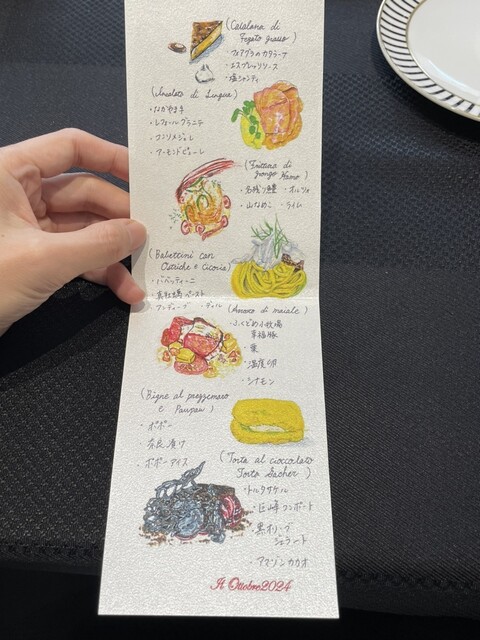 (Catalana di
Fegato grasso)
・フォアグラのカタラーナ
・エスプレッソソース
・塩シャンティ
di Lingua)
・ながやま牛
・レフォールグラニテ
・コンソメジュレ
・アーモンドピューレ
(Frittura di
grongo Hamo)
・名残り鱧 ・オルツォ
・山なめこ ・ライム
(Babettini con
Ostriche e Cicoria)
・バベッティーニ
・真牡蠣ペースト
・アンディーブ ・ディル
di maiale)
・ふくどめ小牧場
幸福豚
・栗
・温度卵
・シナモン
(Bigne al prezzemolo
e Pawpaw)
・ポポー
・奈良漬け
・ポポーアイス
(Torta al cioccolato
Torta Sacher)
・トルタザッケル
・巨峰コンポート
・黒オリーブ
ジェラート
・アマゾンカカオ
Ottobre2024